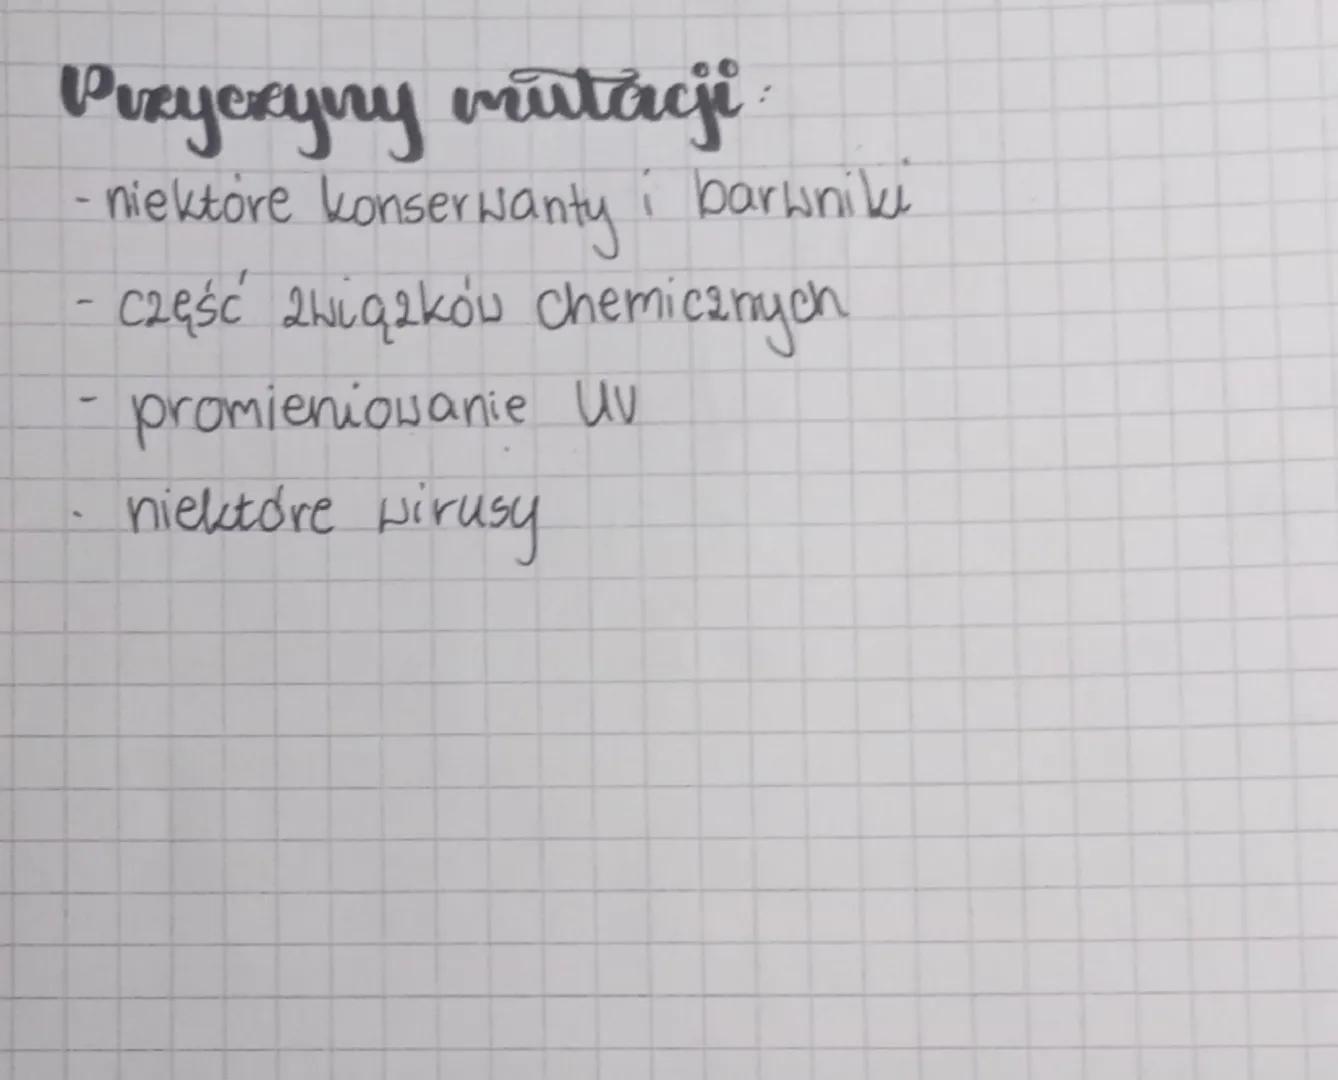 Przyczyny mutacji:
- niektóre konserwanty i barwniki
- część związków chemicznych
- promieniowanie UV
- niektóre wirusy